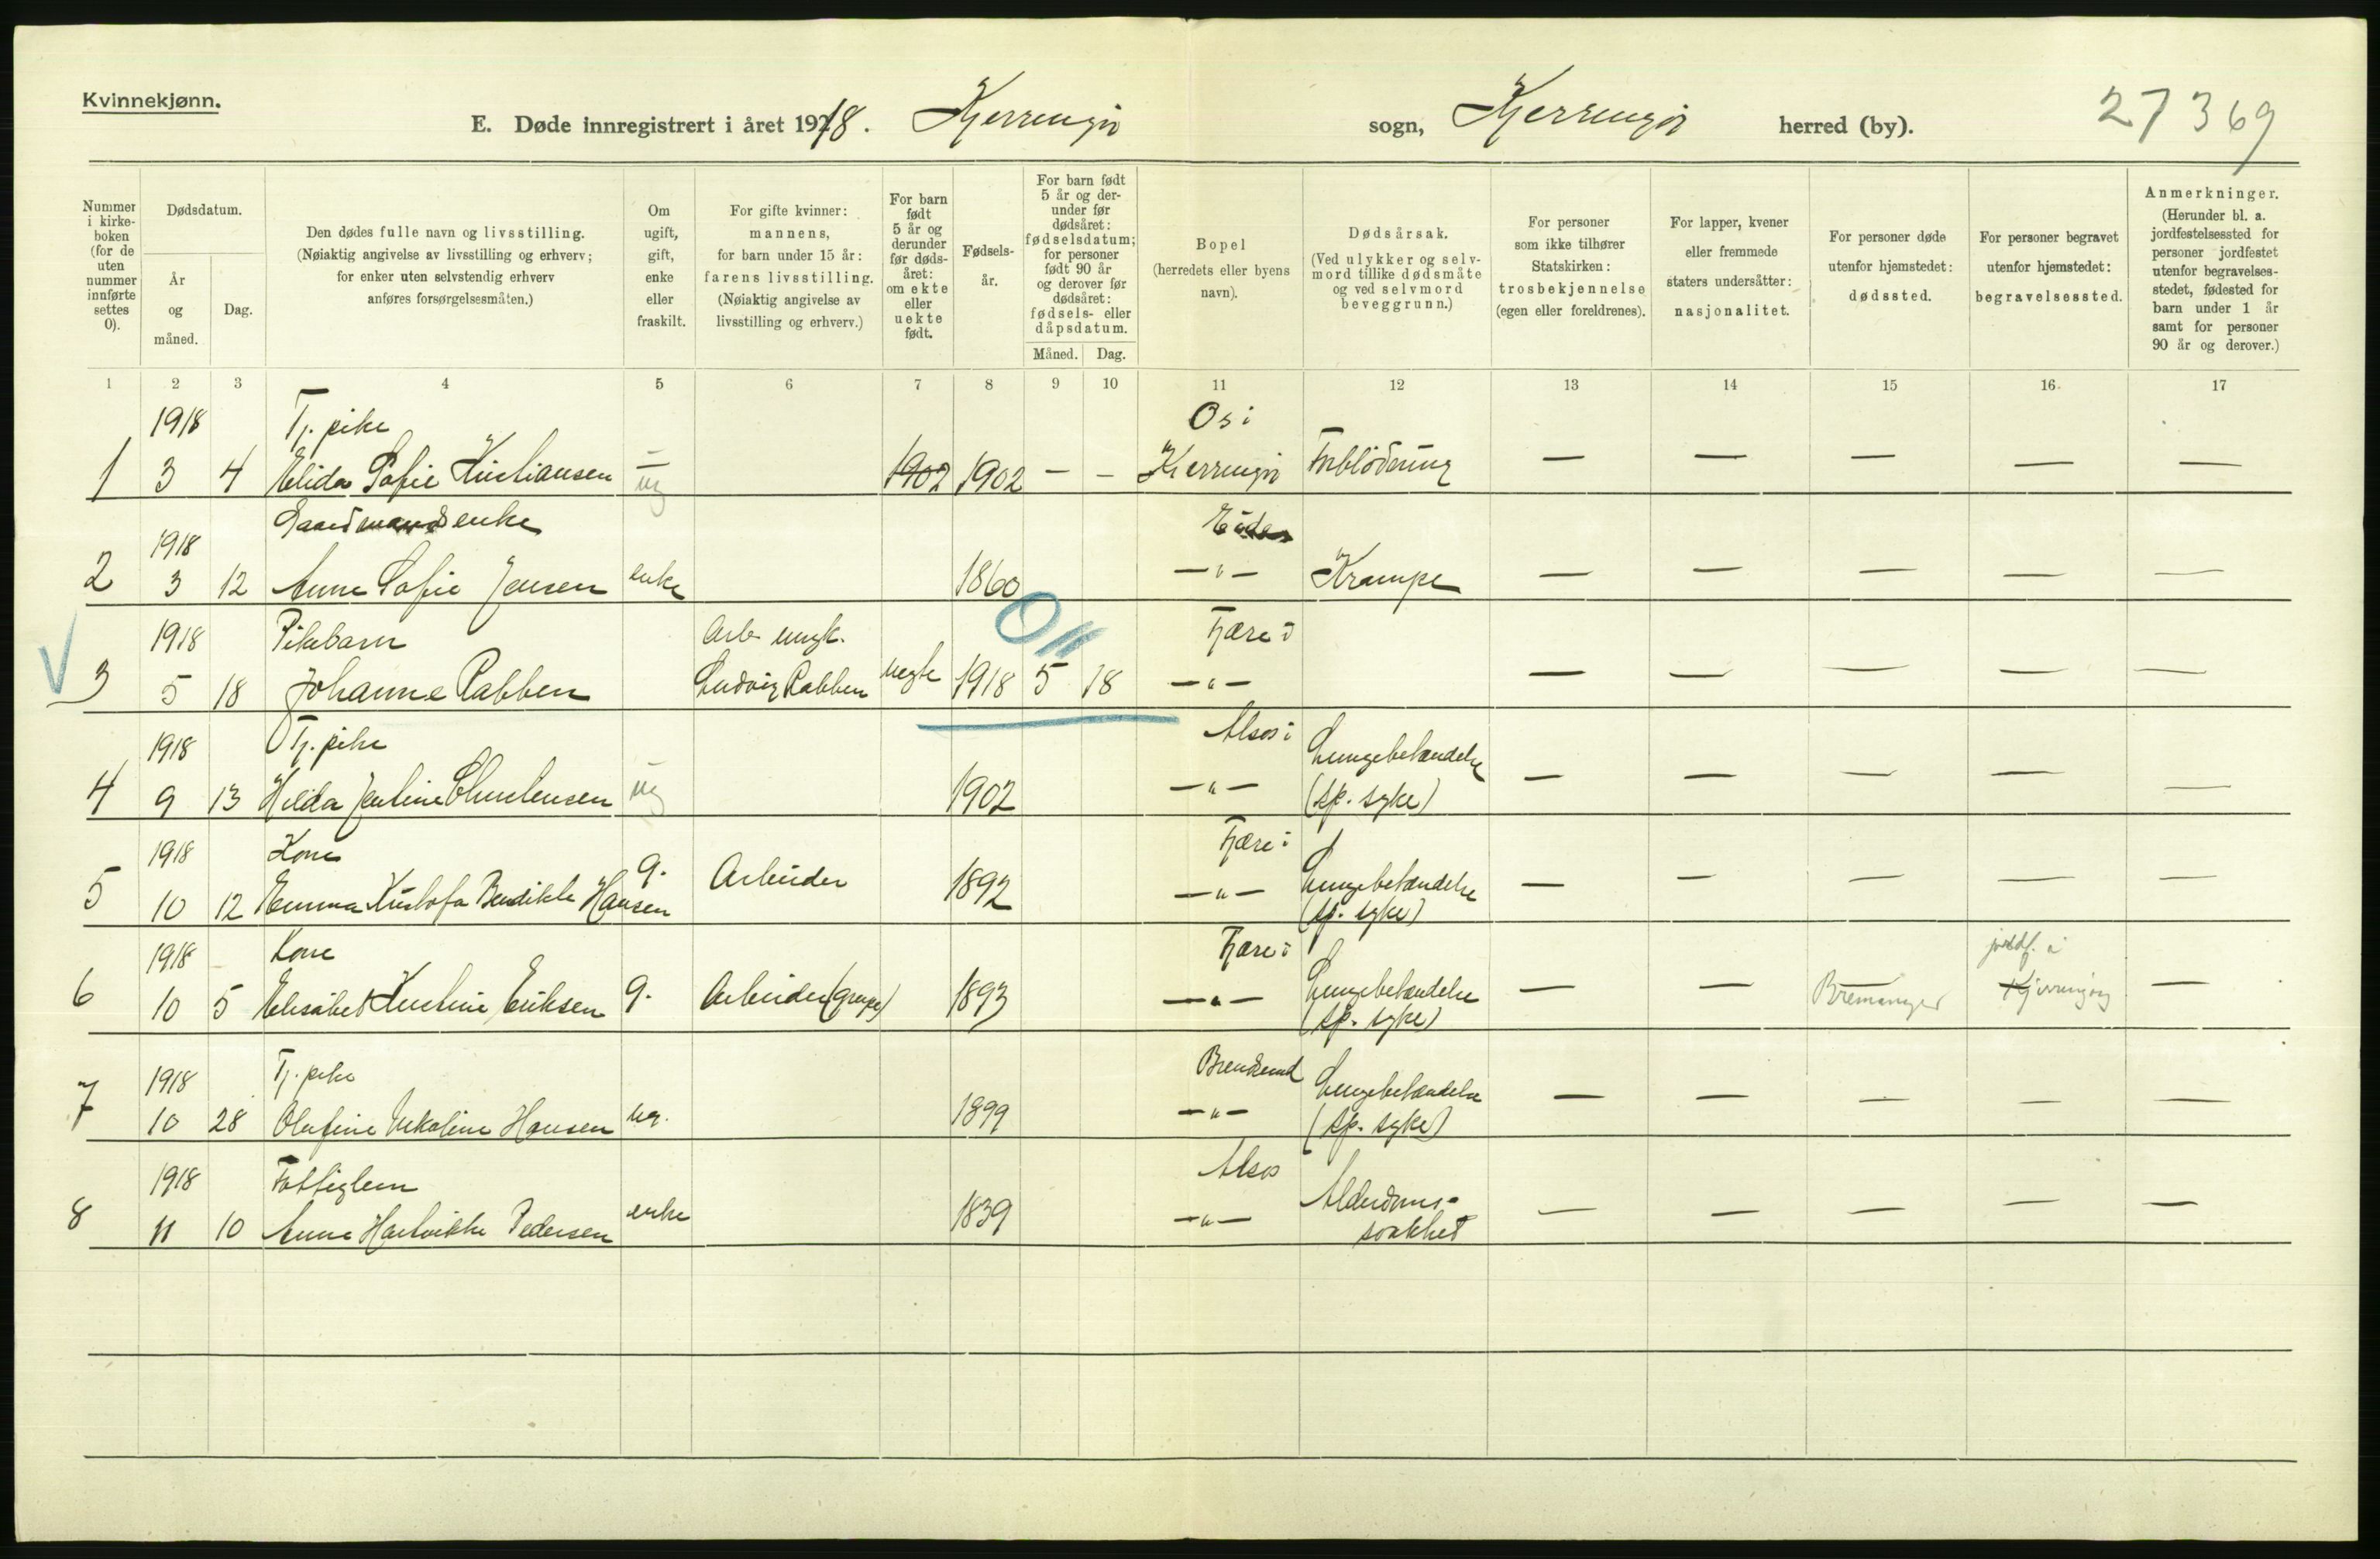 Kvinnekjønn.
E. Døde innregistrert i året 1918. Kjerringøy sogn, Kjerringøy herred (by). 27 369
Nummer i kirke-boken (for de uten nummer innførte settes 0).
Dødsdatum.
År og måned.
Dag.
Den dødes fulle navn og livsstilling.
(Nøiaktig angivelse av livsstilling og erhverv;
for enker uten selvstendig erhverv
anføres forsørgelsesmåten.)
Om ugift, gift, enke eller fraskilt.
For gifte kvinner:
mannens,
for barn under 15 år:
farens livsstilling.
(Nøiaktig angivelse av
livsstilling og erhverv.)
For barn født 5 år og derunder før døds-året: om ekte eller uekte født.
Fødsels-år.
For barn født 5 år og der-under før dødsåret: fødselsdatum; for personer født 90 år og derover før dødsåret: fødsels- eller dåpsdatum.
Måned. Dag.
Bopel
(herredets eller byens
navn).
Dødsårsak.
(Ved ulykker og selv-
mord tillike dødsmåte
og ved selvmord
beveggrunn.)
For personer
som ikke tilhører
Statskirken:
trosbekjennelse
(egen eller foreldrenes).
For lapper, kvener
eller fremmede
staters undersåtter:
nasjonalitet.
For personer døde
utenfor hjemstedet:
dødssted.
For personer begravet
utenfor hjemstedet:
begravelsessted.
Anmerkninger.
(Herunder bl. a.
jordfestelsessted for
personer jordfestet
utenfor begravelses-
stedet, fødested for
barn under 1 år
samt for personer
90 år og derover.)
1 2 3 4 5 6 7 8 9 10 11 12 13 14 15 16 17
1918 Tj. pike Os i
1 3 4 Elida Sofie Kristiansen — ug 1902 1902 — — Kjerringøy Forblödning — — — — —
1918 Gaardmandsenke
2 3 12 Anne Sofie Jensen enke 1860 —"— Krampe — — — — —
1918 Pikebarn Arb. ungk. Fjære i
V 3 5 18 Johanne Rabben Ludvig Rabben uegte 1918 5 18 —"— — — — — —
1918 Tj. pike Alsos i Lungebetændelse
4 9 13 Hilda ug 1902 —"— (sp. syke) — — — — —
1918 Kone Fjære i
5 10 12 Emma Kristofa Bendikte Hansen g. Arbeider 1892 —"— Lungebetændelse (sp. syke) — — — — —
1918 Kone Fjære i jordf. i
6 10 5 Elisabet Kristine Eriksen g. Arbeider 1893 —"— Lungebetændelse (sp. syke) — — Bremanger Kjerringøy —
1918 Tj. pike Lungebetændelse
7 10 28 Olufine Nikoline Hansen ug. 1899 —"— (sp. syke) — — — — —
1918 Fattiglem Alsos Alderdoms-
8 11 10 Anna Hartvikke Pedersen enke 1839 —"— svakhet — — — — —